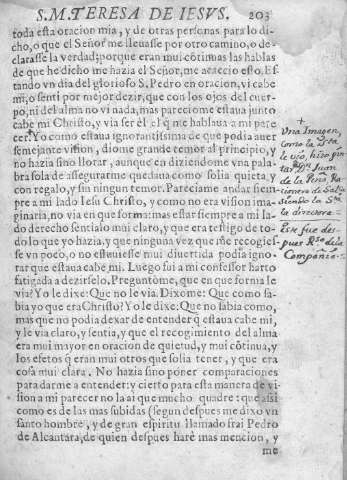 S. M. TERESA DE IESVS. 203
toda esta oracion mia, y de otras personas para lo di-
cho, o que el Señor me lleuasse por otro camino, o de-
clarasse la verdad; porque eran mui cõtinuas las hablas
de que he dicho me hazia el Señor, me acaecio esto. Es
tando vn dia del glorioso S. Pedro en oracion, vi cabe
mi, o senti por mejor dezir, que con los ojos del cuer-
po, ni del alma no vi nada, mas pareciome estaua junto
cabe mi Christo, y via ser el el q̃ me hablaua a mi pare
cer. Yo como estaua ignorantissima de que podia auer
semejante vision, diome grande temor al principio, y
no hazia sino llorar, aunque en diziendome vna pala-
bra sola de assegurarme quedaua como solia quieta, y
con regalo, y sin ningun temor. Pareciame andar siem-
pre a mi lado Iesu Christo, y como no era vision ima-
ginaria, no via en que forma: mas estar siempre a mi la-
do derecho sentialo mui claro, y que era testigo de to-
do lo que yo hazia, y que ninguna vez que me recogies-
se vn poco, o no estuuiesse mui diuertida podia igno-
rar que estaua cabe mi. Luego fui a mi confessor harto
fatigada a dezirselo. Preguntòme, que en que forma le
via? Yo le dixe: Que no le via. Dixome: Que como sa-
bia yo que era Christo? Yo le dixe: Que no sabia como,
mas que no podia dexar de entender q̃ estaua cabe mi,
y le via claro, y sentia, y que el recogimiento del alma
era mui mayor en oracion de quietud, y mui cõtinua, y
los efetos q̃ eran mui otros que solia tener, y que era
cosa mui clara. No hazia sino poner comparaciones
para darme a entender: y cierto para esta manera de vi-
sion a mi parecer no la ai que mucho quadre: que assi
como es de las mas subidas (segun despues me dixo vn
santo hombre, y de gran espiritu llamado frai Pedro
de Alcantara, de quien despues harè mas mencion, y
me
+
Vna Imagen,
como la Sta
le vio, hizo pin
tar
Juan
siendo la Sta
Este fue des-
pues Rr. de la
Compañia.